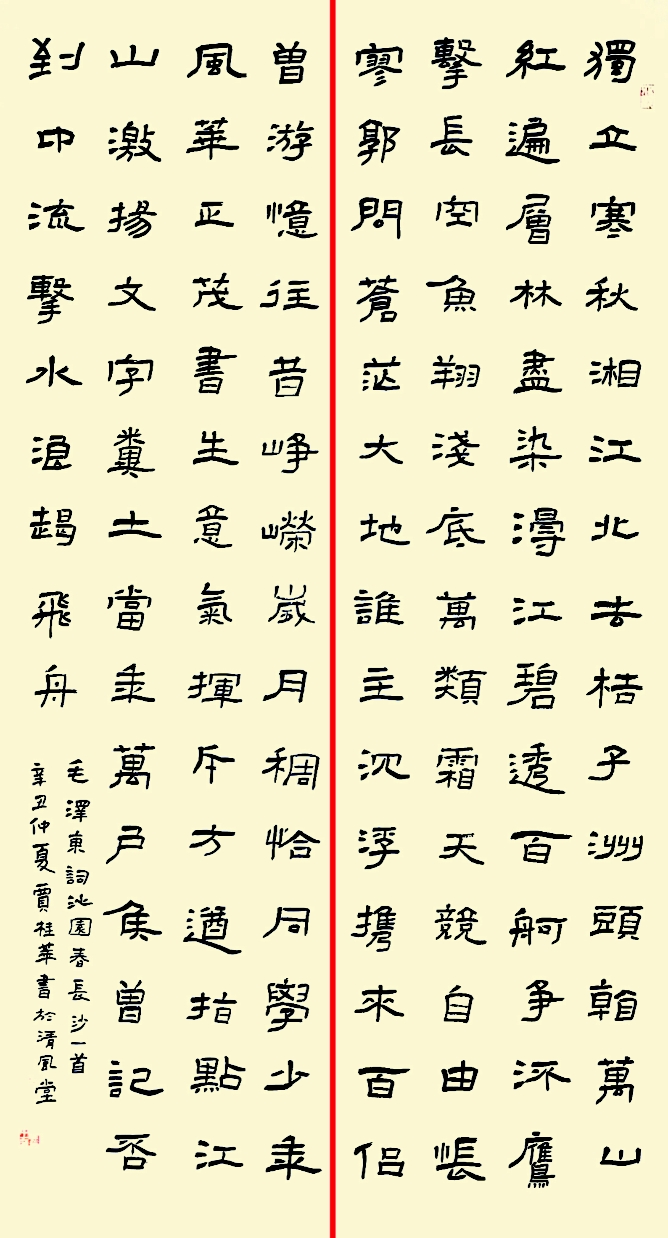 獨立寒秋湘江北去桔子洲頭看萬山
紅遍層林盡染漫江碧透百舸爭流鷹
擊長空魚翔淺底萬類霜天競自由悵
寥郭問蒼茫大地誰主沉浮攜來百侶
曾游憶往昔崢嶸歲月稠恰同學少年
風華正茂書生意氣揮斥方遒指點江
山激揚文字糞土當年萬戶侯曾記否
到中流擊水浪遏飛舟
毛澤東詞沁園春長沙一首
辛丑仲夏賈桂華書於清風堂